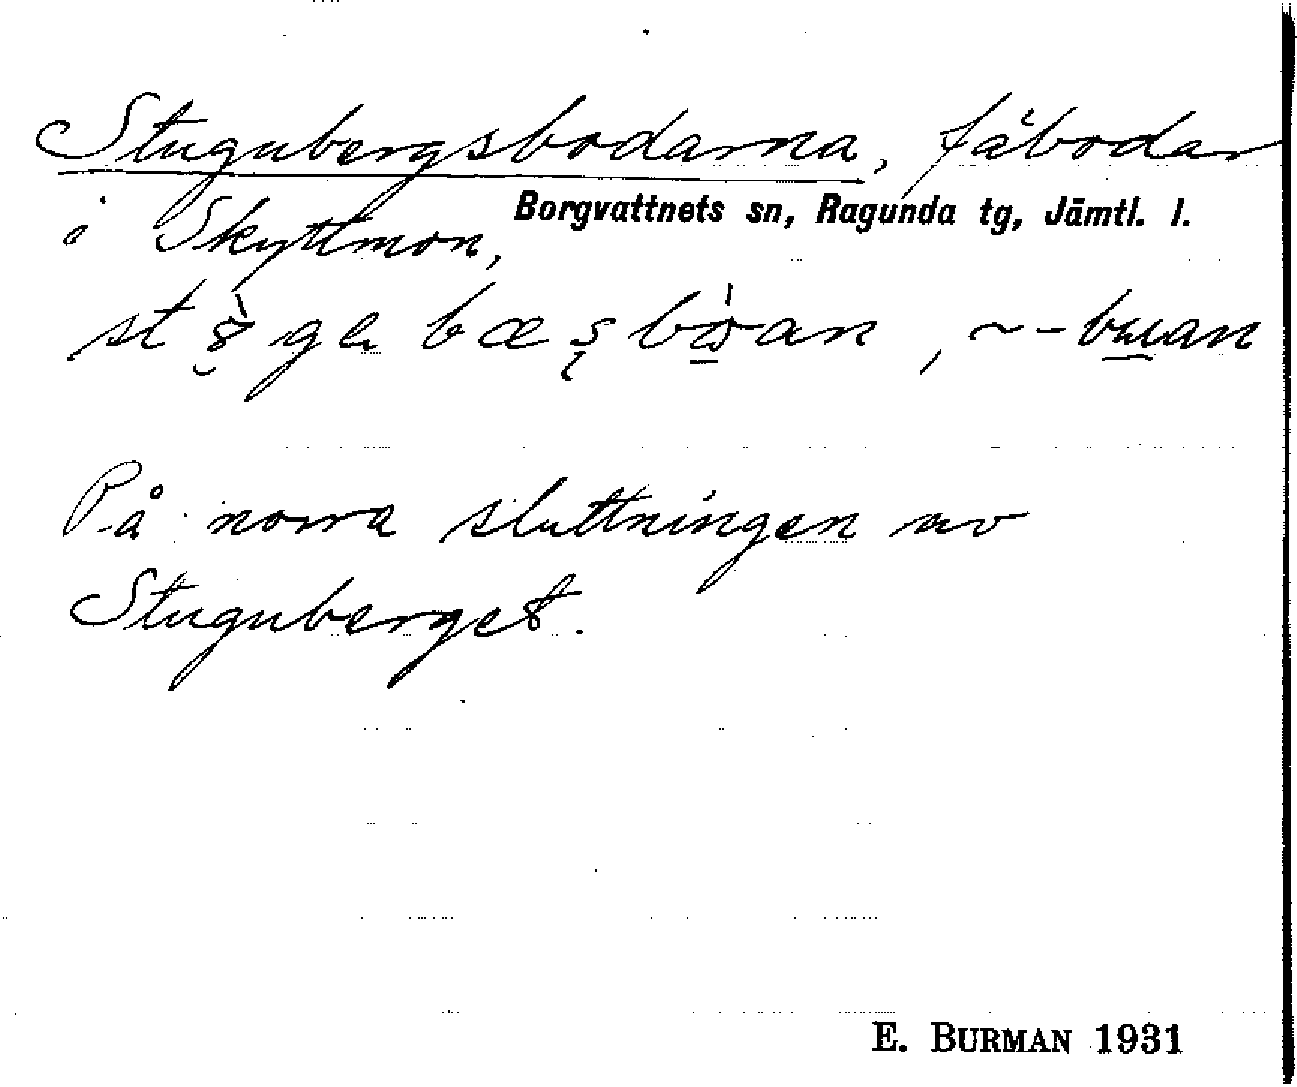 Stugubergsbodarna, fäbodar
Borgvattnets sn, Ragunda tg, Jämtl. l.
i Skyttmon,
På norra sluttningen av
Stuguberget.
E. BURMAN 1931